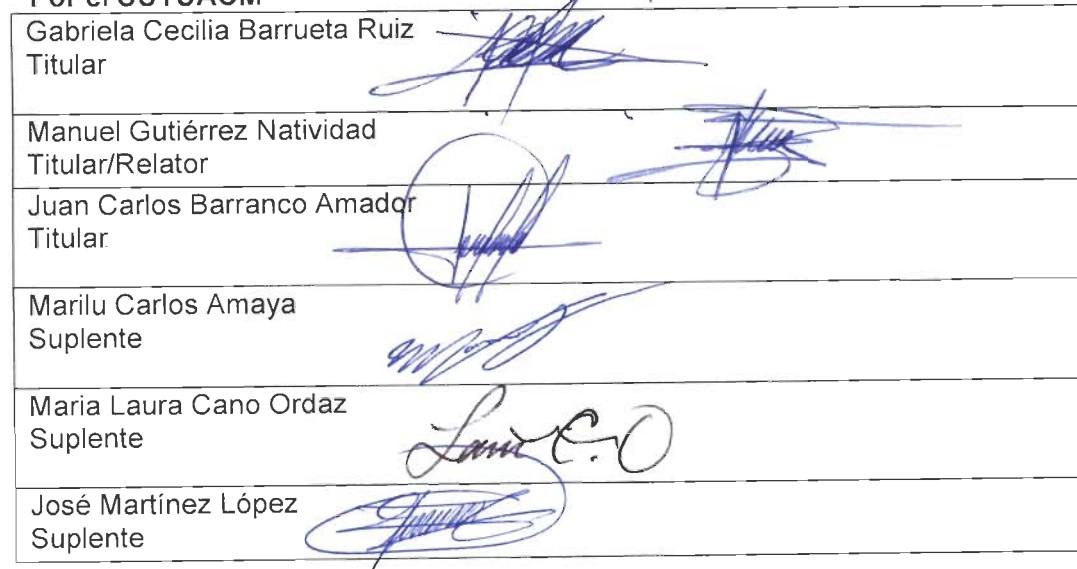 Por el SUTUACM
Gabriela Cecilia Barrueta Ruiz
Titular
Manuel Gutiérrez Natividad
Titular/Relator
Juan Carlos Barranco Amador
Titular
Marilu Carlos Amaya
Suplente
Maria Laura Cano Ordaz
Suplente
Laura C.O
José Martínez López
Suplente